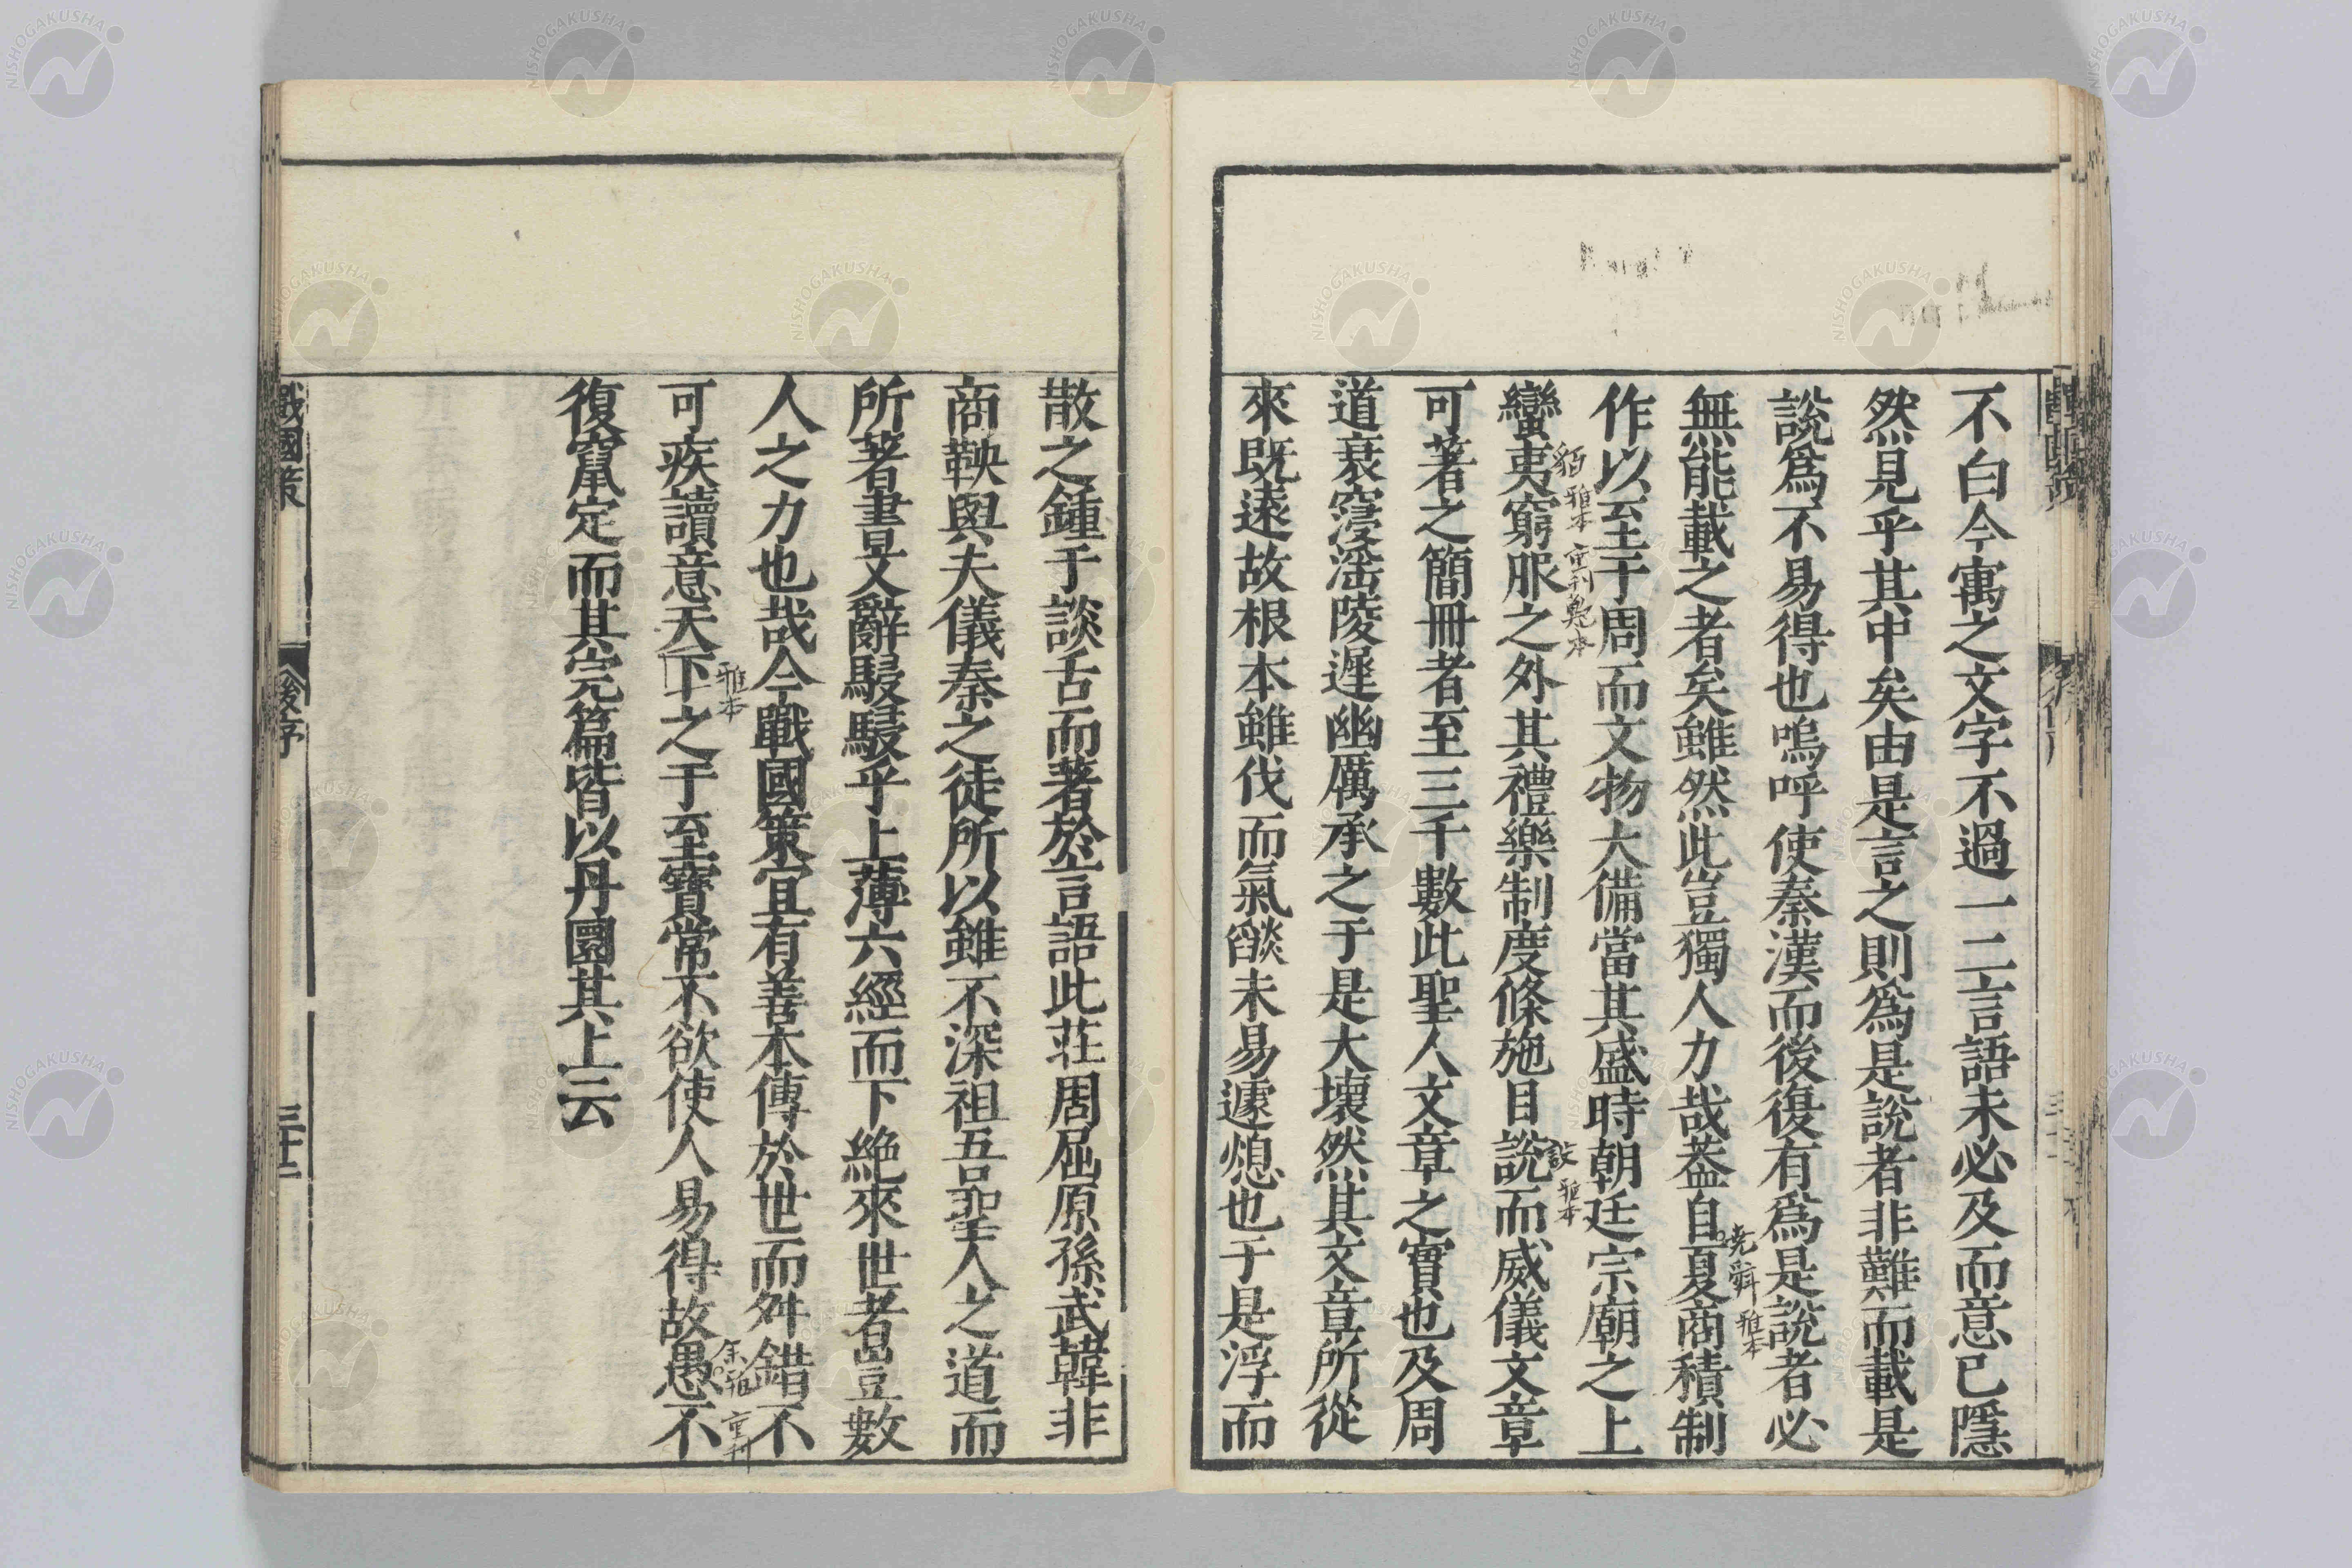 不白今寓之文字不過一二言語未必及而意已隱
然見乎其中矣由是言之則爲是說者非難而載是
說爲不易得也嗚呼使秦漢而後復有爲是說者必
無能載之者矣雖然此豈獨人力哉葢自夏商積制
堯舜 雅本
作以至于周而文物大備當其盛時朝廷宗廟之上
貊 雅本
蠻夷窮服之外其禮樂制度條施目說而威儀文章
設 雅本
可著之簡冊者至三千數此聖人文章之實也及周
道衰寖淫陵遲幽厲承之于是大壞然其文章所從
來既遠故根本雖伐而氣燄未易遽熄也于是浮而
散之鍾于談舌而著於言語此莊周屈原孫武韓非
商鞅與夫儀秦之徒所以雖不深祖吾聖人之道而
所著書㫖文辭駸駸乎上薄六經而下絶來世者豈數
人之力也哉今戰國策宜有善本傳於世而舛錯不
可疾讀意天下之于至寶常不欲使人易得故愚不
雅本
余 雅 重刊
復竄定而其完篇皆以丹圜其上云
戰國策
後序
三十二
NISHOGAKUSHA